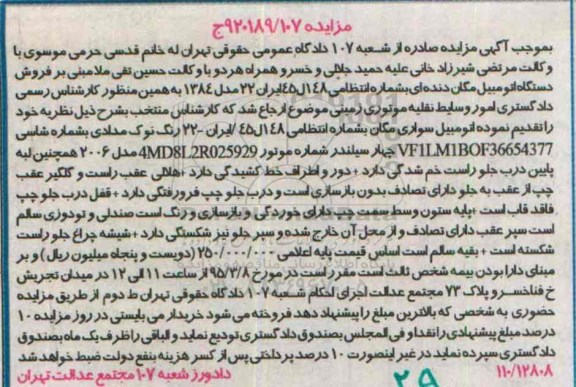 مزایده ۹۲۰۱۸۹/۱۰۷ج
بموجب آگهی مزایده صادره از شعبه ۱۰۷ دادگاه عمومی حقوقی تهران له خانم قدسی حرمی موسوی با
وکالت مرتضی شیرزاد خانی علیه حمید جلالی و خسرو همراه هر دو با وکالت حسین تقی ملا مبنی بر فروش
دستگاه اتومبیل مگان دنده ای بشماره انتظامی ۱۴۸ل۴۵ ایران ۲۲ مدل ۱۳۸۴ به همین منظور کارشناس رسمی
دادگستری امور وسایط نقلیه موتوری زمینی موضوع ارجاع شد که کارشناس منتخب بشرح ذیل نظریه خود
را تقدیم نموده اتومبیل سواری مگان بشماره انتظامی ۱۴۸ل۴۵/ایران -۲۲ رنگ نوک مدادی بشماره شاسی
VF1LM1BOF36654377 چهار سیلندر شماره موتور 4MD8L2R025929 مدل ۲۰۰۶ همچنین لبه
پایین درب جلو راست خم شدگی دارد + دور و اطراف خط کشیدگی دارد + هلالی عقب راست و گلگیر عقب
چپ از عقب به جلو دارای تصادف بدون بازسازی است و درب جلو چپ فرورفتگی دارد + قفل درب جلو چپ
فاقد قاب است + پایه ستون وسط سمت چپ دارای خوردگی و بازسازی و رنگ است صندلی و تودوزی سالم
است سپر عقب دارای تصادف و از محل آن خارج شده و سپر جلو نیز شکستگی دارد + شیشه چراغ جلو راست
شکسته است + بقیه سالم است اساس قیمت پایه اعلامی ۲۵۰/۰۰۰/۰۰۰ (دویست و پنجاه میلیون ریال) و بر
مبنای دارا بودن بیمه شخص ثالث است مقرر است در مورخ ۹۵/۳/۸ از ساعت ۱۱ الی ۱۲ در میدان تجریش
خ فناخسرو پلاک ۷۳ مجتمع عدالت اجرای احکام شعبه ۱۰۷ دادگاه حقوقی تهران ط دوم از طریق مزایده
حضوری به شخصی که بالاترین مبلغ را پیشنهاد دهد فروخته می شود خریدار می بایستی در روز مزایده ۱۰
درصد مبلغ پیشنهادی را نقدا و فی المجلس بصندوق دادگستری تودیع نماید و الباقی را ظرف یک ماه بصندوق
دادگستری سپرده نماید در غیر اینصورت ۱۰ درصد پرداختی پس از کسر هزینه بنفع دولت ضبط خواهد شد
۱۱۰/۱۲۸۰۸
دادورز شعبه ۱۰۷ مجتمع عدالت تهران
۲۹